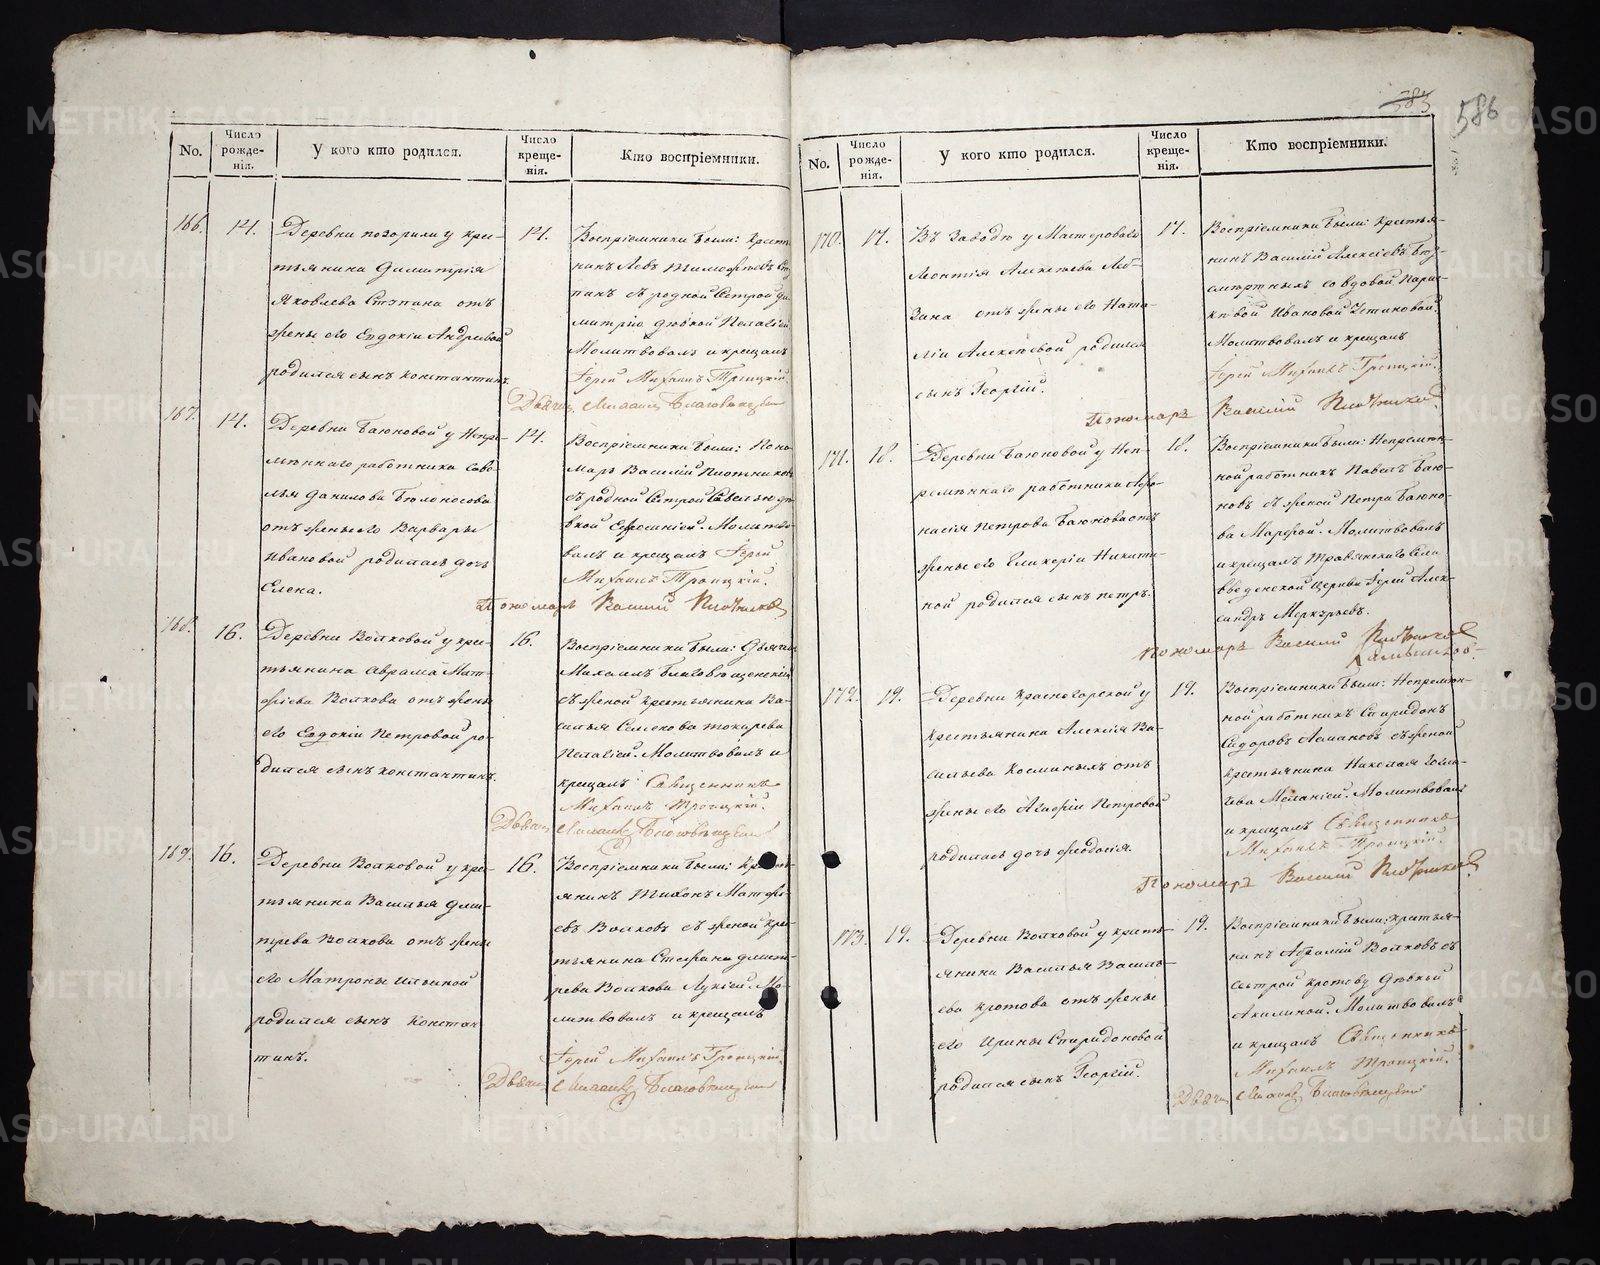 585
586
No.
Число рожде-нія.
У кого кто родился.
Число креще-нія.
Кто воспріемники.
166.
14.
Деревни позорихи у кре-
стьянина Димитрія
Яковлева Степина отъ
жены его Евдокіи Андреевой
родился сынъ константинъ.
14.
Воспріемники были: крестья
нинъ Левъ Тимофеевъ Сте
пинъ съ родной сестрой Ди
митрія девкой Пелагіей
Молитвовалъ и крещалъ
Іерей Михаилъ Троицкій.
Дьячекъ Михаилъ Благовещенскій
167.
14.
Деревни Баюновой у Непре-
меннаго работника Саве-
лья Данилова Белоносова
отъ жены его Варвары
Ивановой родилась дочь
Елена.
14.
Воспріемники были: Поно
марь Василій Плотниковъ
съ родной сестрой Савелья де
вкой Ефросиніей. Молитво
валъ и крещалъ Іерей
Михаилъ Троицкій.
Пономарь Василій Плотниковъ
168.
16.
Деревни Волковой у кре-
стьянина Аврама Мат-
фіева Волкова отъ жены
его Евдокіи Петровой ро-
дился сынъ константинъ.
16.
Воспріемники были: Дьячекъ
Михаилъ Благовещенскій
съ женой крестьянина Ва-
силья Семенова токарева
Пелагіей. Молитвовалъ и
крещалъ Священникъ
Михаилъ Троицкій.
Дьячекъ Михаилъ Благовещенскій
169.
16.
Деревни Волковой у кре-
стьянина Василья Дми-
трева Волкова отъ жены
его Матроны Ильиной
родился сынъ Констан
тинъ.
16.
Воспріемники были: Кресть
янинъ Тихонъ Матфі-
евъ Волковъ съ женой кре-
стьянина Стефана Дмит-
рева Волкова Лукіей. Мо-
литвовалъ и крещалъ
Іерей Михаилъ Троицкій.
Дьячекъ Михаилъ Благовещенскій
No.
Число рожде-нія.
У кого кто родился.
Число креще-нія.
Кто воспріемники.
170.
17.
Въ Заводе у Мастероваго
Леонтія Алексеева Леб-
зина отъ жены его Ната-
ліи Алексеевой родился
сынъ Георгій.
17.
Воспріемники были: крестья-
нинъ Василій Алексеевъ Без-
смертныхъ со вдовой Парас-
кевой Ивановой Устиновой.
Молитвовалъ и крещалъ
Іерей Михаилъ Троицкій.
Пономарь Василій Плотниковъ
171.
18.
Деревни Баюновой у Неп-
ременнаго работника Афо-
насія Петрова Баюнова отъ
жены его Гликеріи Никити-
ной родился сынъ петръ.
18.
Воспріемники были: Непремен-
ной работникъ Павелъ Баю-
новъ съ женой Петра Баюно-
ва Марфой. Молитвовалъ
и крещалъ Травянскаго Села
введенской церкви Іерей Алек-
сандръ Меркурьевъ.
Пономарь Василій Плотниковъ
172.
19.
Деревни Красногорской у
крестьянина Алексія Ва-
сильева Косминыхъ отъ
жены его Агафіи Петровой
родилась дочь Феодосія.
19.
Воспріемники были: Непремен-
ной работникъ Спиридонъ
Сидоровъ съ женой
крестьянина Николая
Меланіей. Молитвовалъ
и крещалъ Священникъ
Михаилъ Троицкій.
Пономарь Василій Плотниковъ
173.
19.
Деревни Волковой у кресть-
янина Василья Василь-
ева кротова отъ жены
его Ирины Спиридоновой
родился сынъ Георгій.
19.
Воспріемники были: крестья-
нинъ Абрамій Волковъ съ
сестрой кротову Девкой
Акилиной. Молитвовалъ
и крещалъ Священникъ
Михаилъ Троицкій.
Дьячекъ Михаилъ Благовещенскій
METRIKI.GASO-URAL.RU